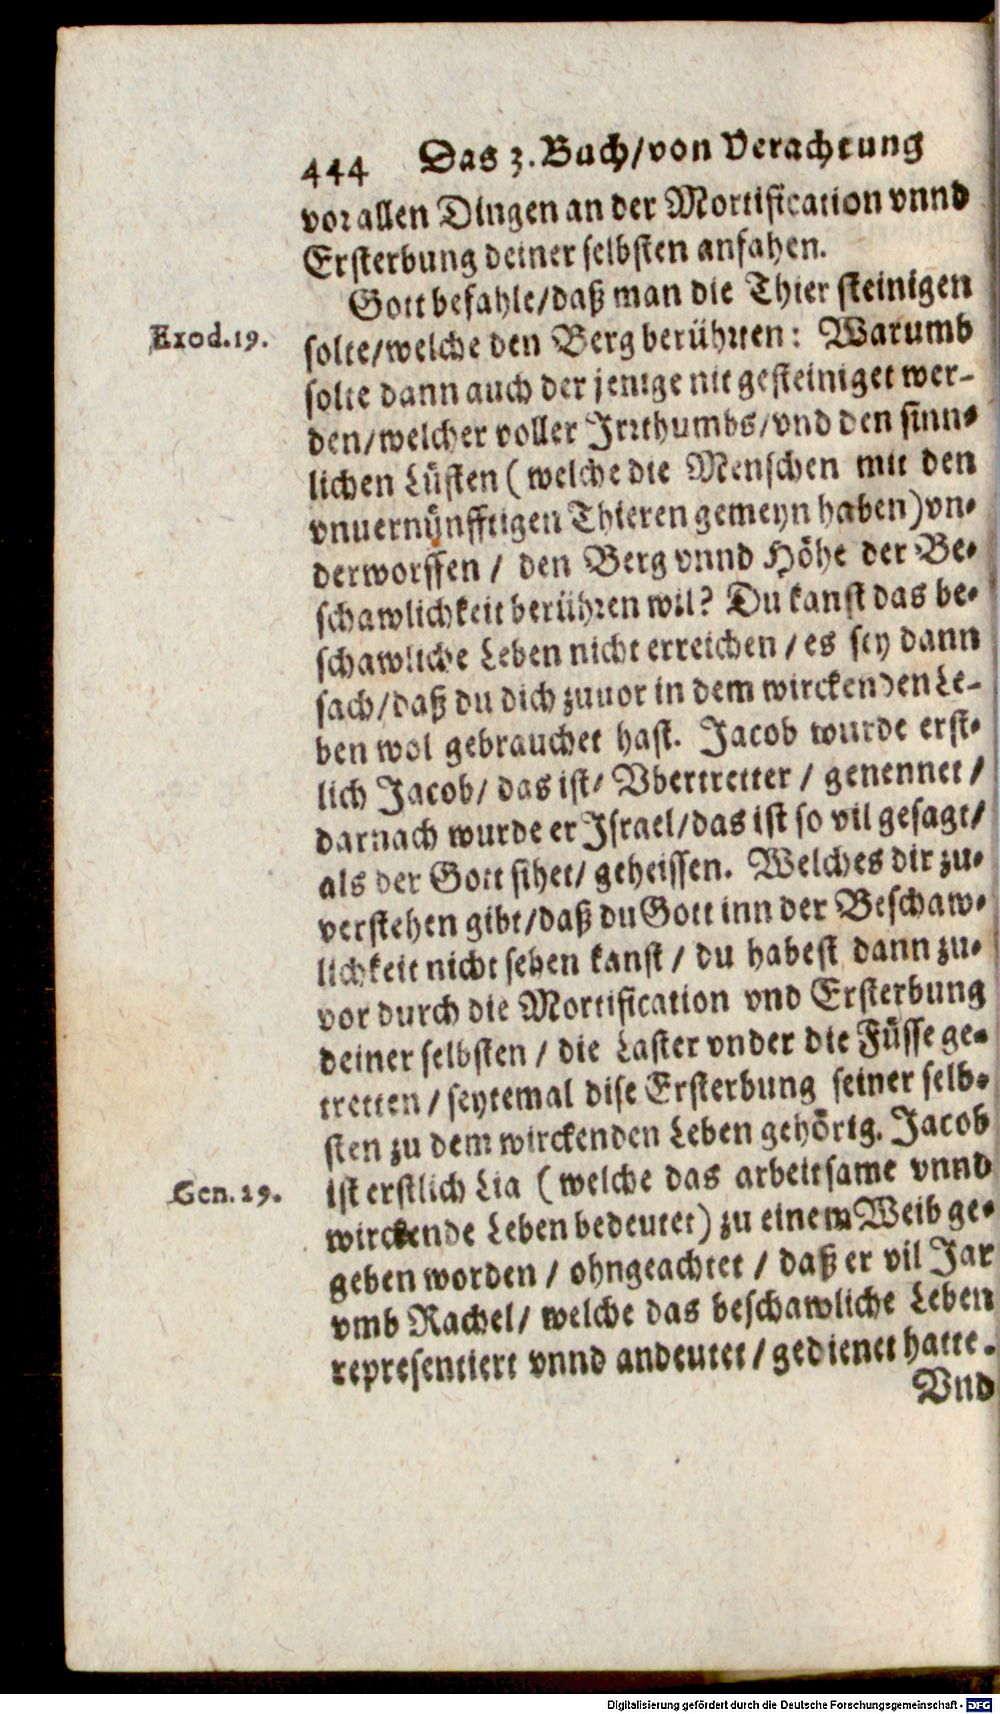 444 Das 3. Buch/von Verachtung
vor allen Dingen an der Mortification vnnd
Ersterbung deiner selbsten anfahen.
Gott befahle/daß man die Thier steinigen
Exod.19.
solte/welche den Berg berührten: Warumb
solte dann auch der jenige nit gesteiniget wer-
den/welcher voller Irrthumbs/vnd den sinn-
lichen Lüsten (welche die Menschen mit den
vnuernünfftigen Thieren gemeyn haben) vn-
derworffen / den Berg vnnd Höhe der Be-
schawlichkeit berühren wil? Du kanst das be-
schawliche Leben nicht erreichen / es sey dann
sach/daß du dich zuuor in dem wirckenden Le-
ben wol gebrauchet hast. Jacob wurde erst-
lich Jacob/ das ist/ Vbertretter / genennet /
darnach wurde er Israel/das ist so vil gesagt/
als der Gott sihet/ geheissen. Welches dir zu-
verstehen gibt/daß du Gott inn der Beschaw-
lichkeit nicht sehen kanst / du habest dann zu-
vor durch die Mortification vnd Ersterbung
deiner selbsten / die Laster vnder die Füsse ge-
tretten / seytemal dise Ersterbung seiner selb-
sten zu dem wirckenden Leben gehörig. Jacob
Gen. 29.
ist erstlich Lia (welche das arbeitsame vnnd
wirckende Leben bedeutet) zu einem Weib ge-
geben worden / ohngeachtet / daß er vil Jar
vmb Rachel/ welche das beschawliche Leben
representiert vnnd andeutet / gedienet hatte.
Vnd
Digitalisierung gefördert durch die Deutsche Forschungsgemeinschaft - DFG